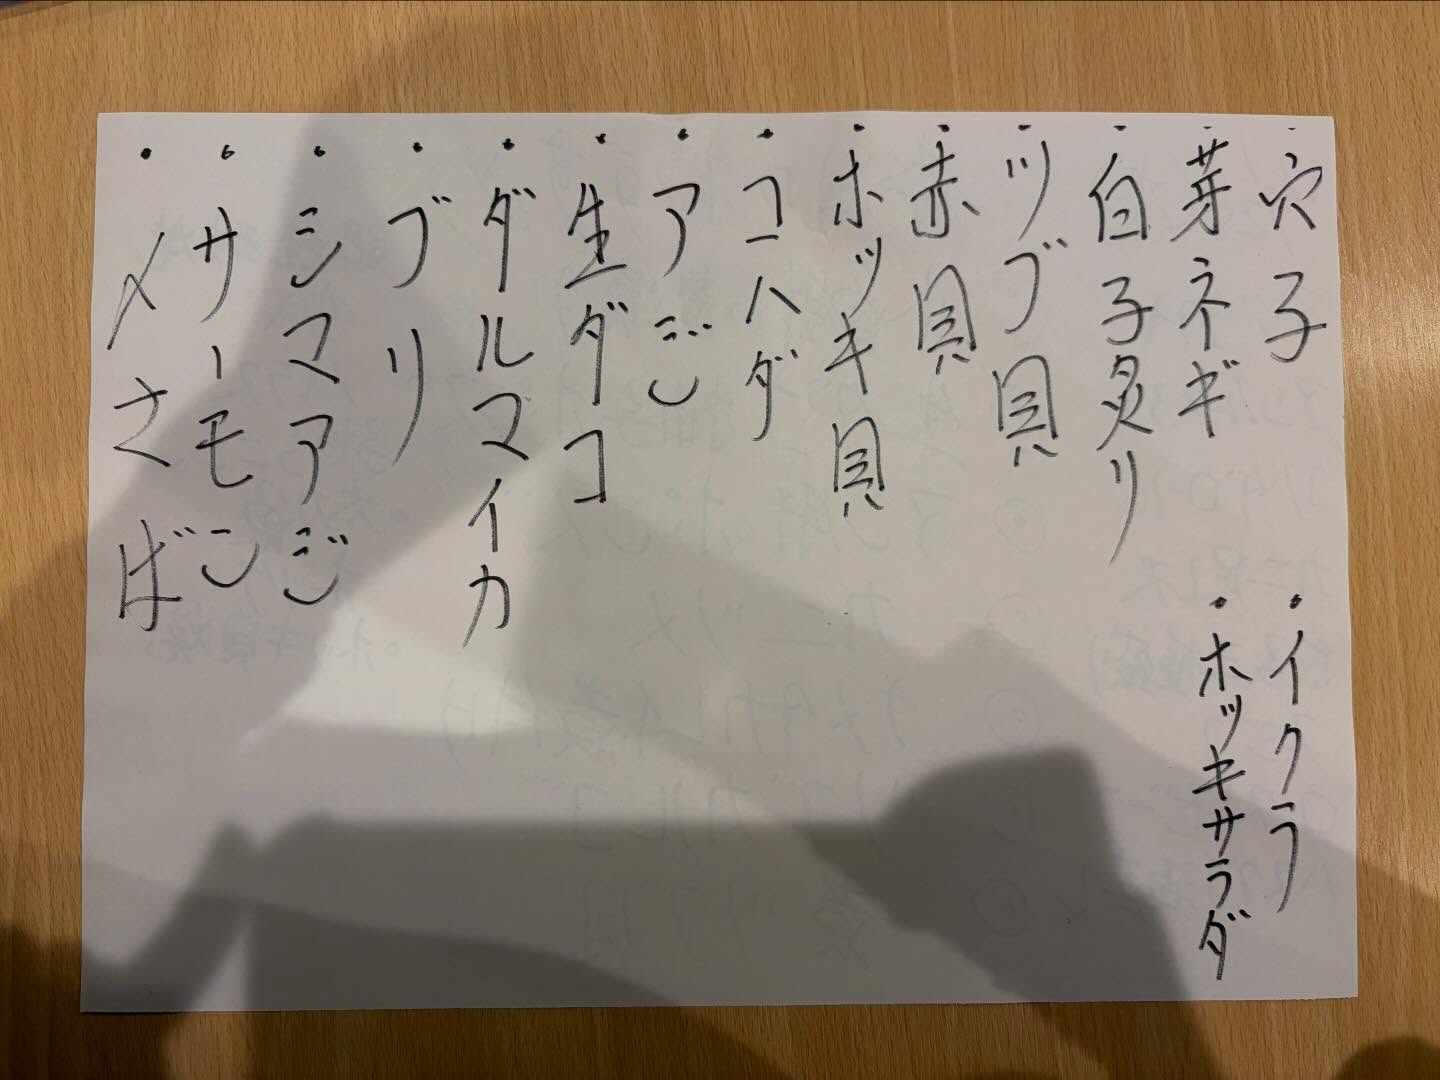 ・穴子
・芽ネギ
・白子炙り
・ツブ貝
・赤貝
・ホッキ貝
・コハダ
・アジ
・生ダコ
・ダルマイカ
・ブリ
・シマアジ
・サーモン
・〆さば
・イクラ
・ホッキサラダ